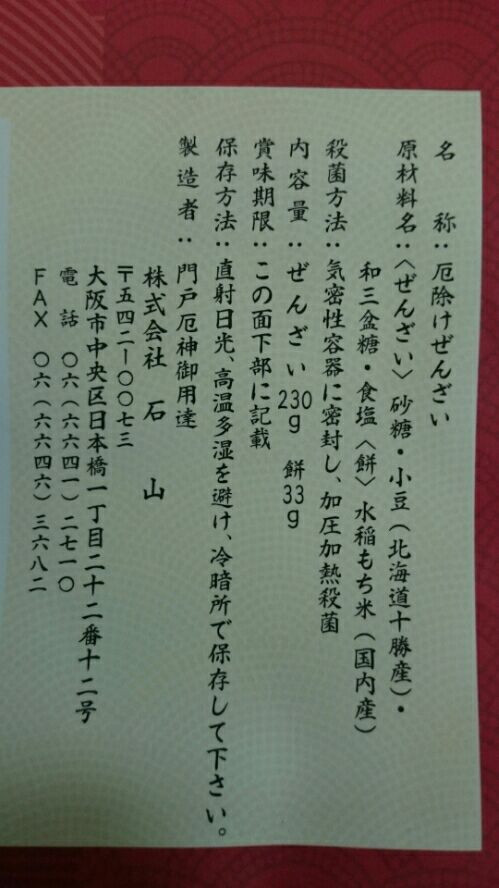 名　称：厄除けぜんざい
原材料名：〈ぜんざい〉砂糖・小豆（北海道十勝産）・
和三盆糖・食塩〈餅〉水稲もち米（国内産）
殺菌方法：気密性容器に密封し、加圧加熱殺菌
内容量：ぜんざい230g　餅33g
賞味期限：この面下部に記載
保存方法：直射日光、高温多湿を避け、冷暗所で保存して下さい。
製造者：門戸厄神御用達
株式会社　石　山
〒五四二ー〇〇七三
大阪市中央区日本橋一丁目二十二番十二号
電　話　〇六（六六四一）二七一〇
ＦＡＸ　〇六（六六四六）三六八二